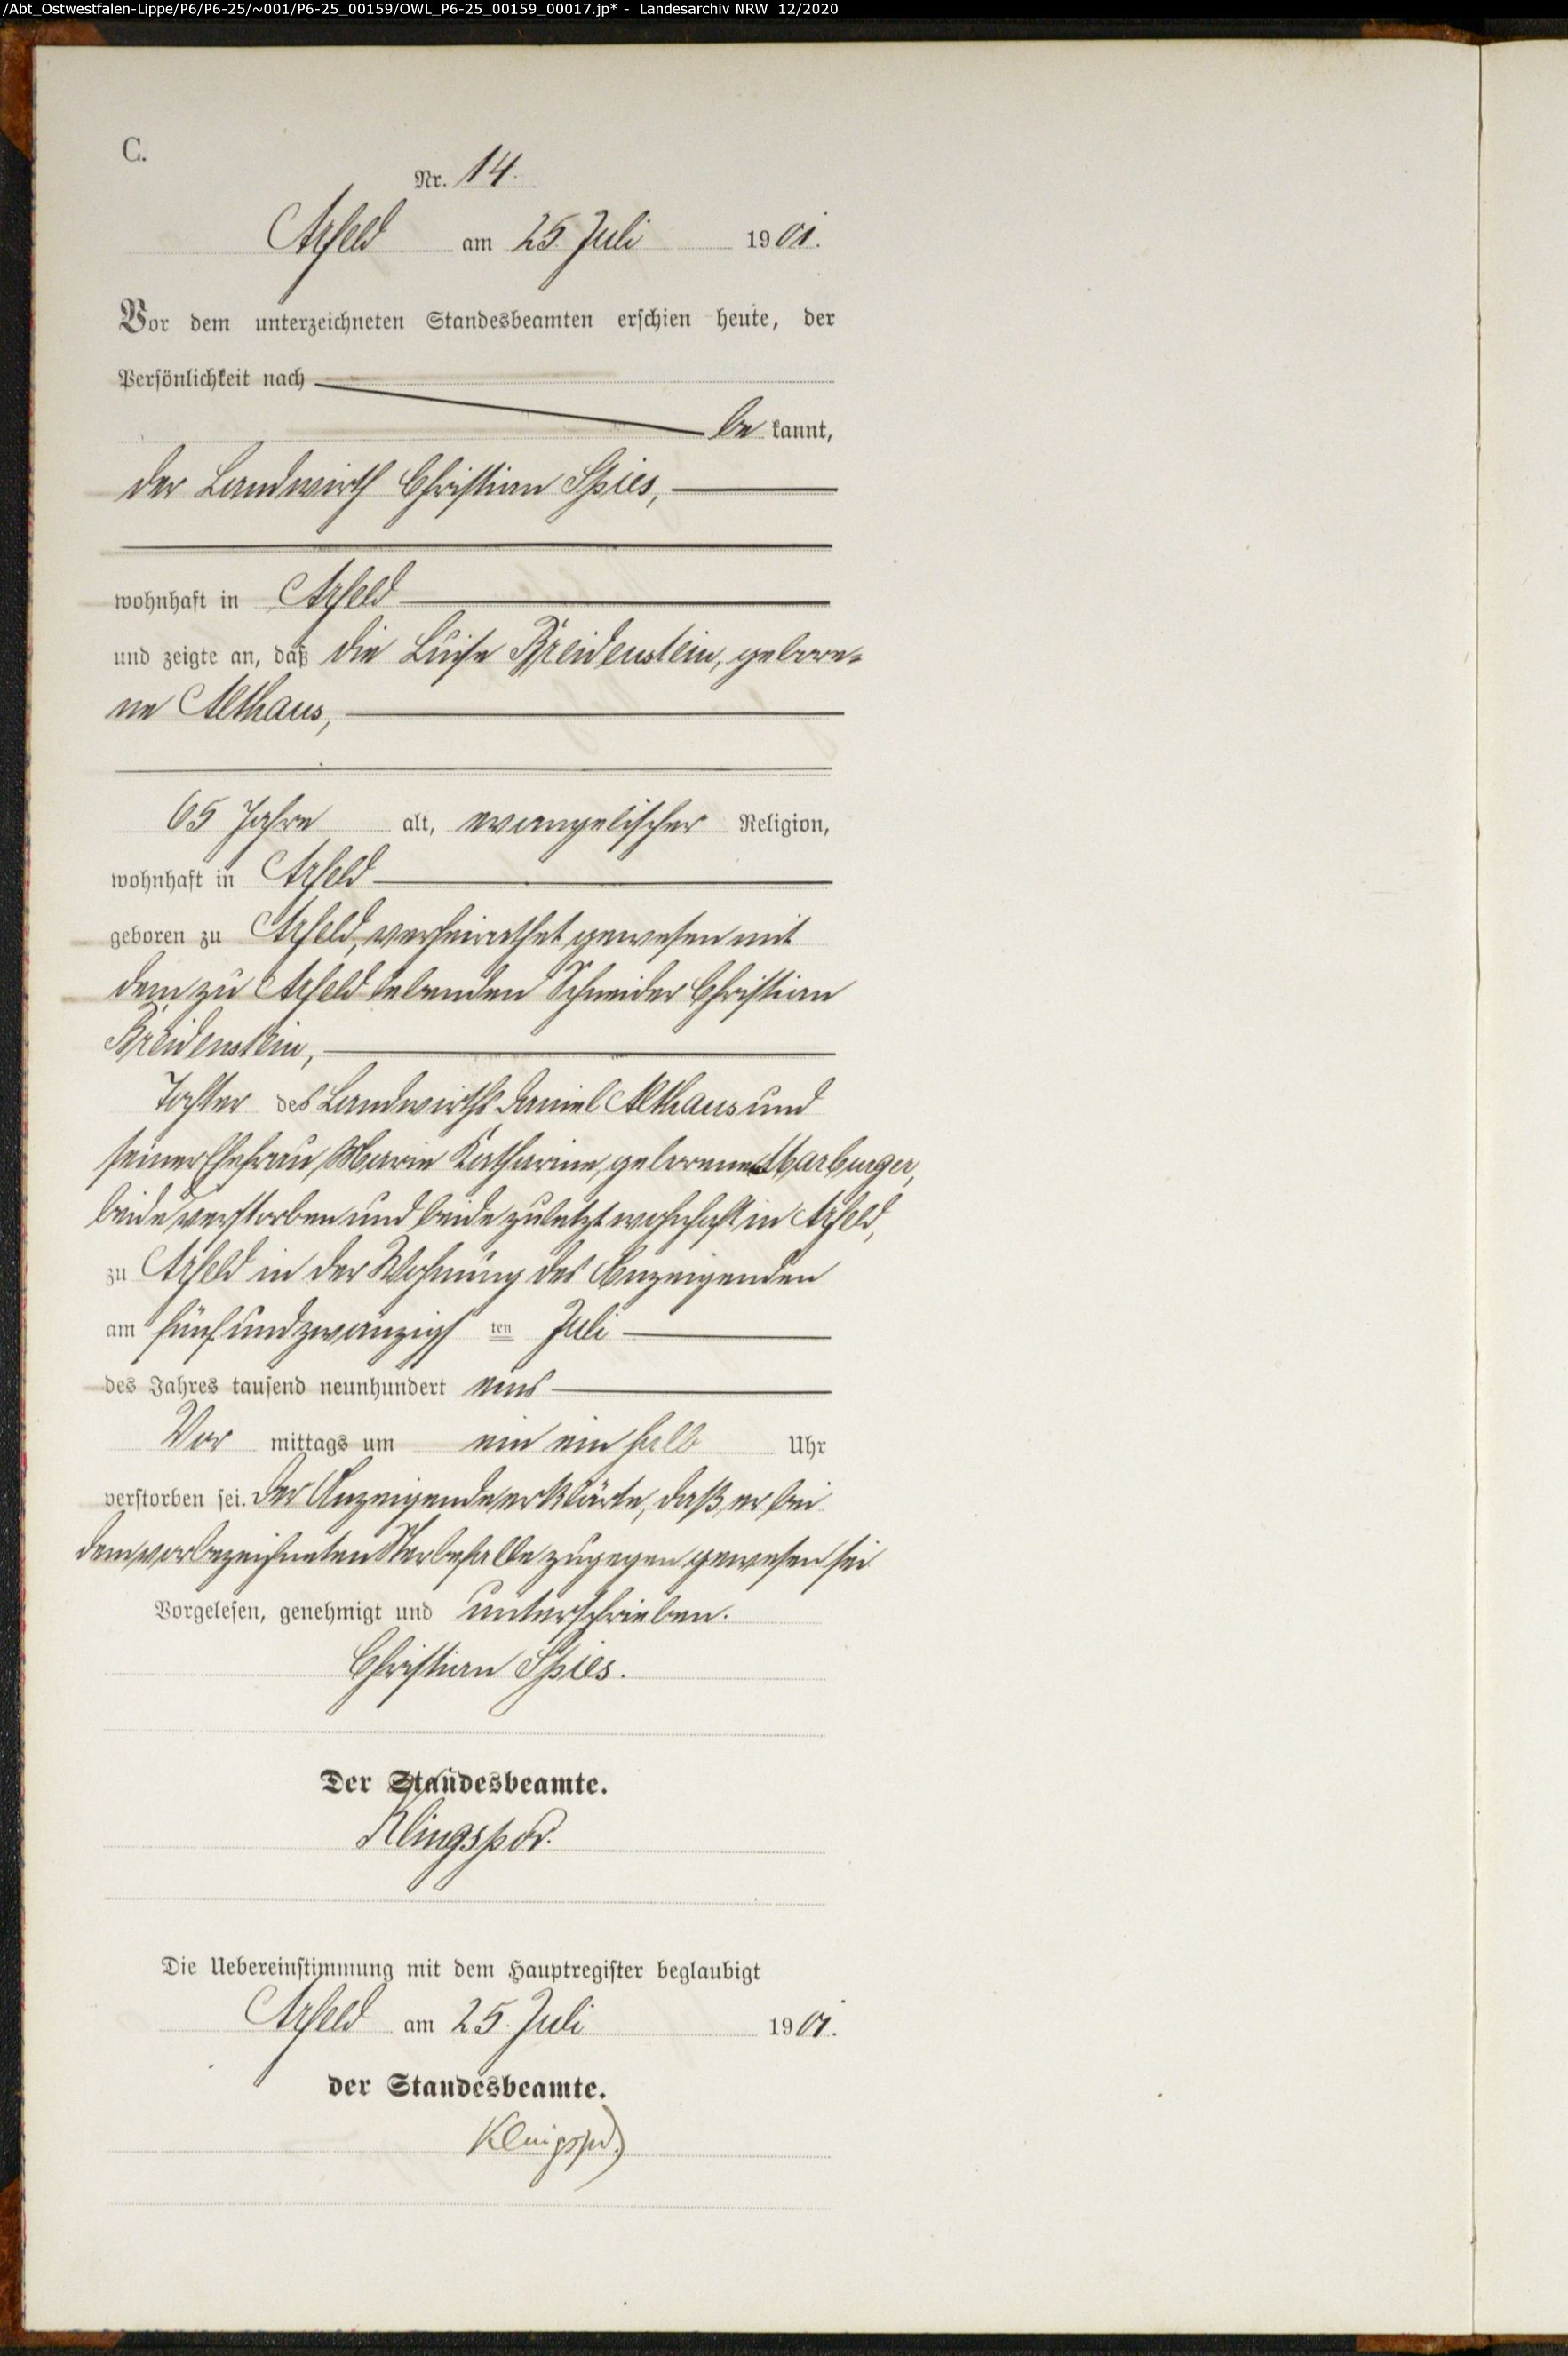 /Abt_Ostwestfalen-Lippe/P6/P6-25/~001/P6-25_00159/OWL_P6-25_00159_00017.jp* - Landesarchiv NRW 12/2020
C.
Nr. 14.
Arfeld am 25. Juli 1901.
Vor dem unterzeichneten Standesbeamten erschien heute, der
Persönlichkeit nach
be kannt,
der Landwirth Christian Spies,
wohnhaft in Arfeld
und zeigte an, daß die Luise Breidenstein, gebore-
ne Althaus,
65 Jahre alt, evangelischer Religion,
wohnhaft in Arfeld
geboren zu Arfeld, verheirathet gewesen mit
dem zu Arfeld lebenden Schneider Christian
Breidenstein,
Tochter des Landwirths Daniel Althaus und
seiner Ehefrau Marie Katharine, geborene Marburger,
beide verstorben und beide zuletzt wohnhaft in Arfeld,
zu Arfeld in der Wohnung des Anzeigenden
am fünfundzwanzigs ten Juli
des Jahres tausend neunhundert eins
Vor mittags um ein ein halb Uhr
verstorben sei. Der Anzeigende erklärte, daß er bei
dem vorbezeichneten Sterbefalle zugegen gewesen sei
Vorgelesen, genehmigt und unterschrieben.
Christian Spies.
Der Standesbeamte.
Klingspor.
Die Uebereinstimmung mit dem Hauptregister beglaubigt
Arfeld am 25. Juli 1901.
der Standesbeamte.
Klingspor